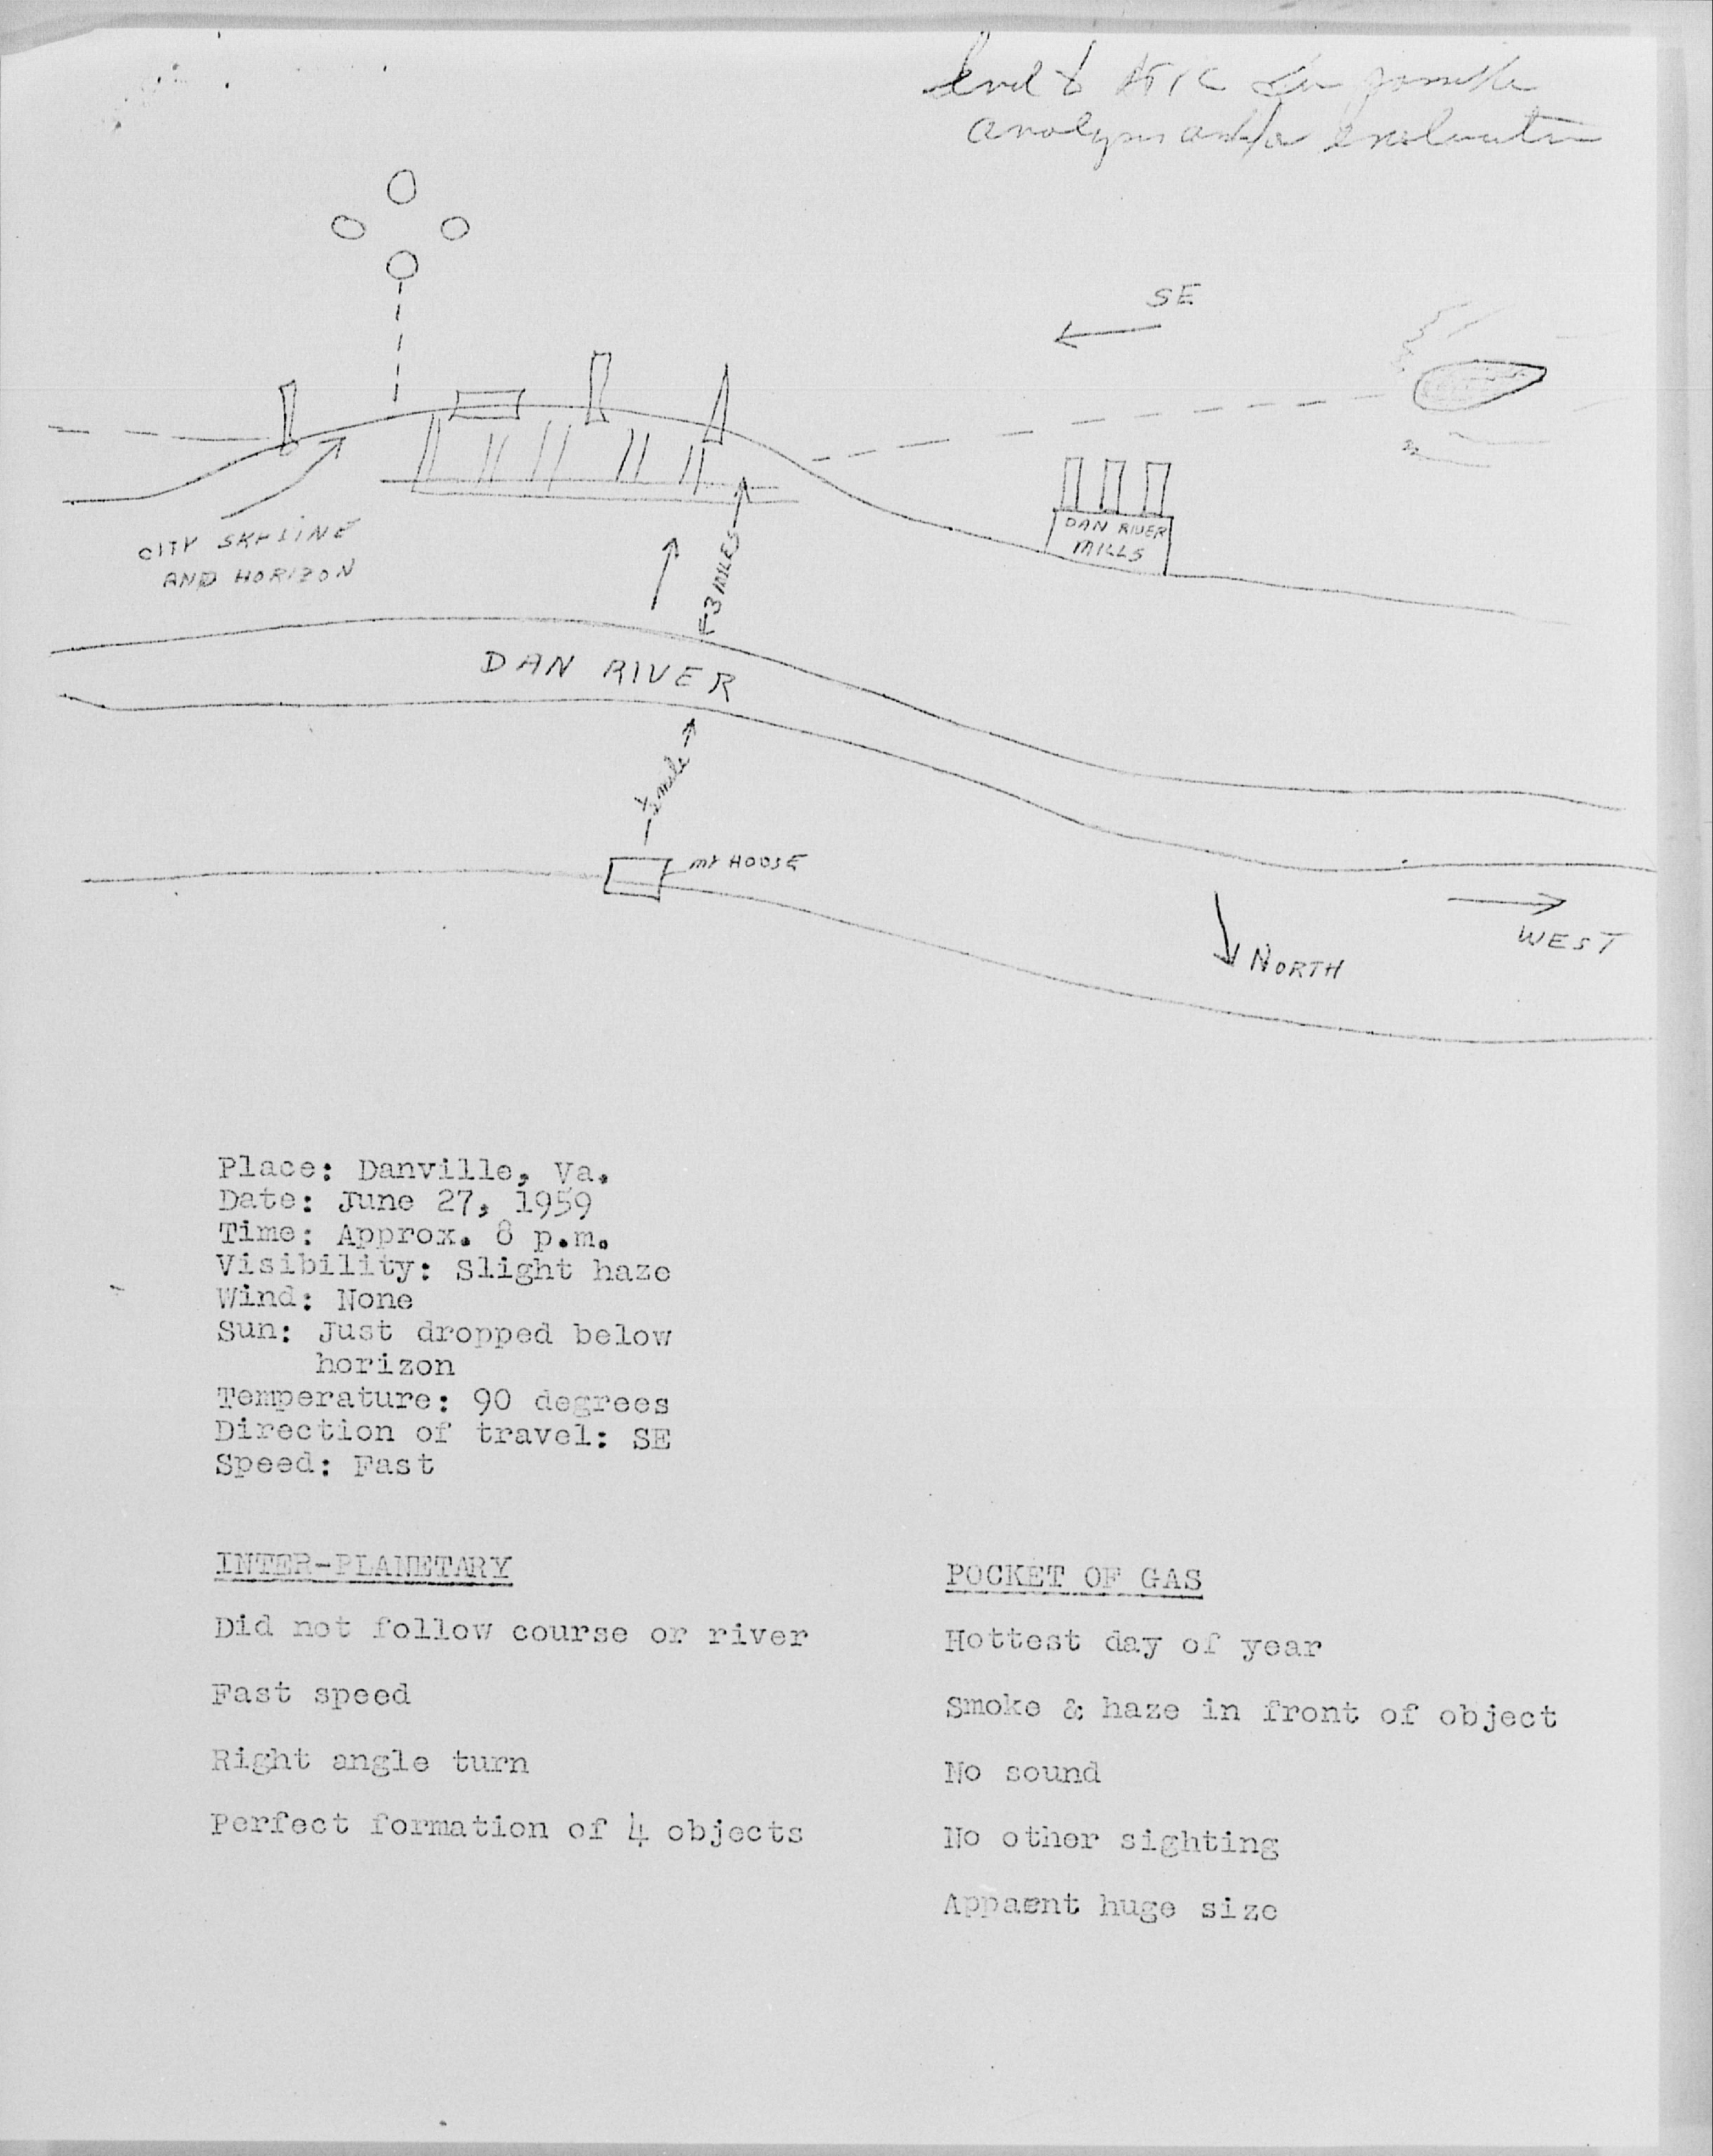 Send to ATIC for possible
analysis and/or evaluation
SE
DAN RIVER
MILLS
CITY SKYLINE
AND HORIZON
3 MILES
DAN RIVER
½ mile
MY HOUSE
WEST
NORTH
Place: Danville, Va.
Date: June 27, 1959
Time: Approx. 8 p.m.
Visibility: Slight haze
Wind: None
Sun: Just dropped below
horizon
Temperature: 90 degrees
Direction of travel: SE
Speed: Fast
INTER-PLANETARY
Did not follow course or river
Fast speed
Right angle turn
Perfect formation of 4 objects
POCKET OF GAS
Hottest day of year
Smoke & haze in front of object
No sound
No other sighting
Appaent huge size